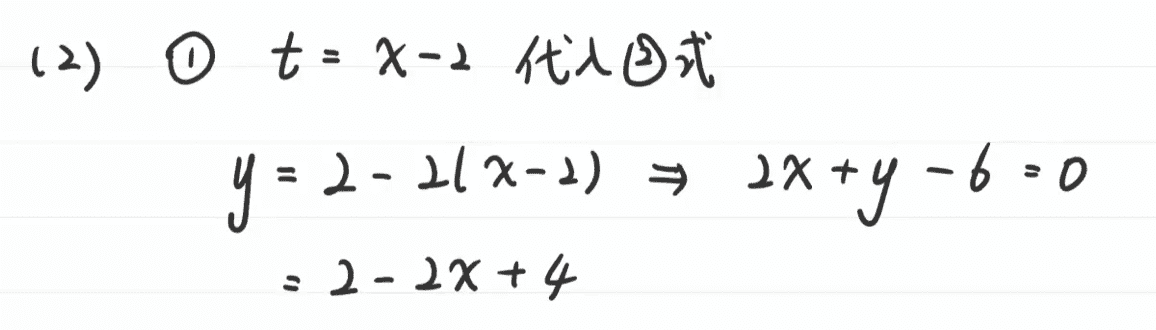 (2) ① t = x-2 代入②式
y = 2 - 2(x-2) ⇒ 2x+y-6=0
= 2 - 2x + 4